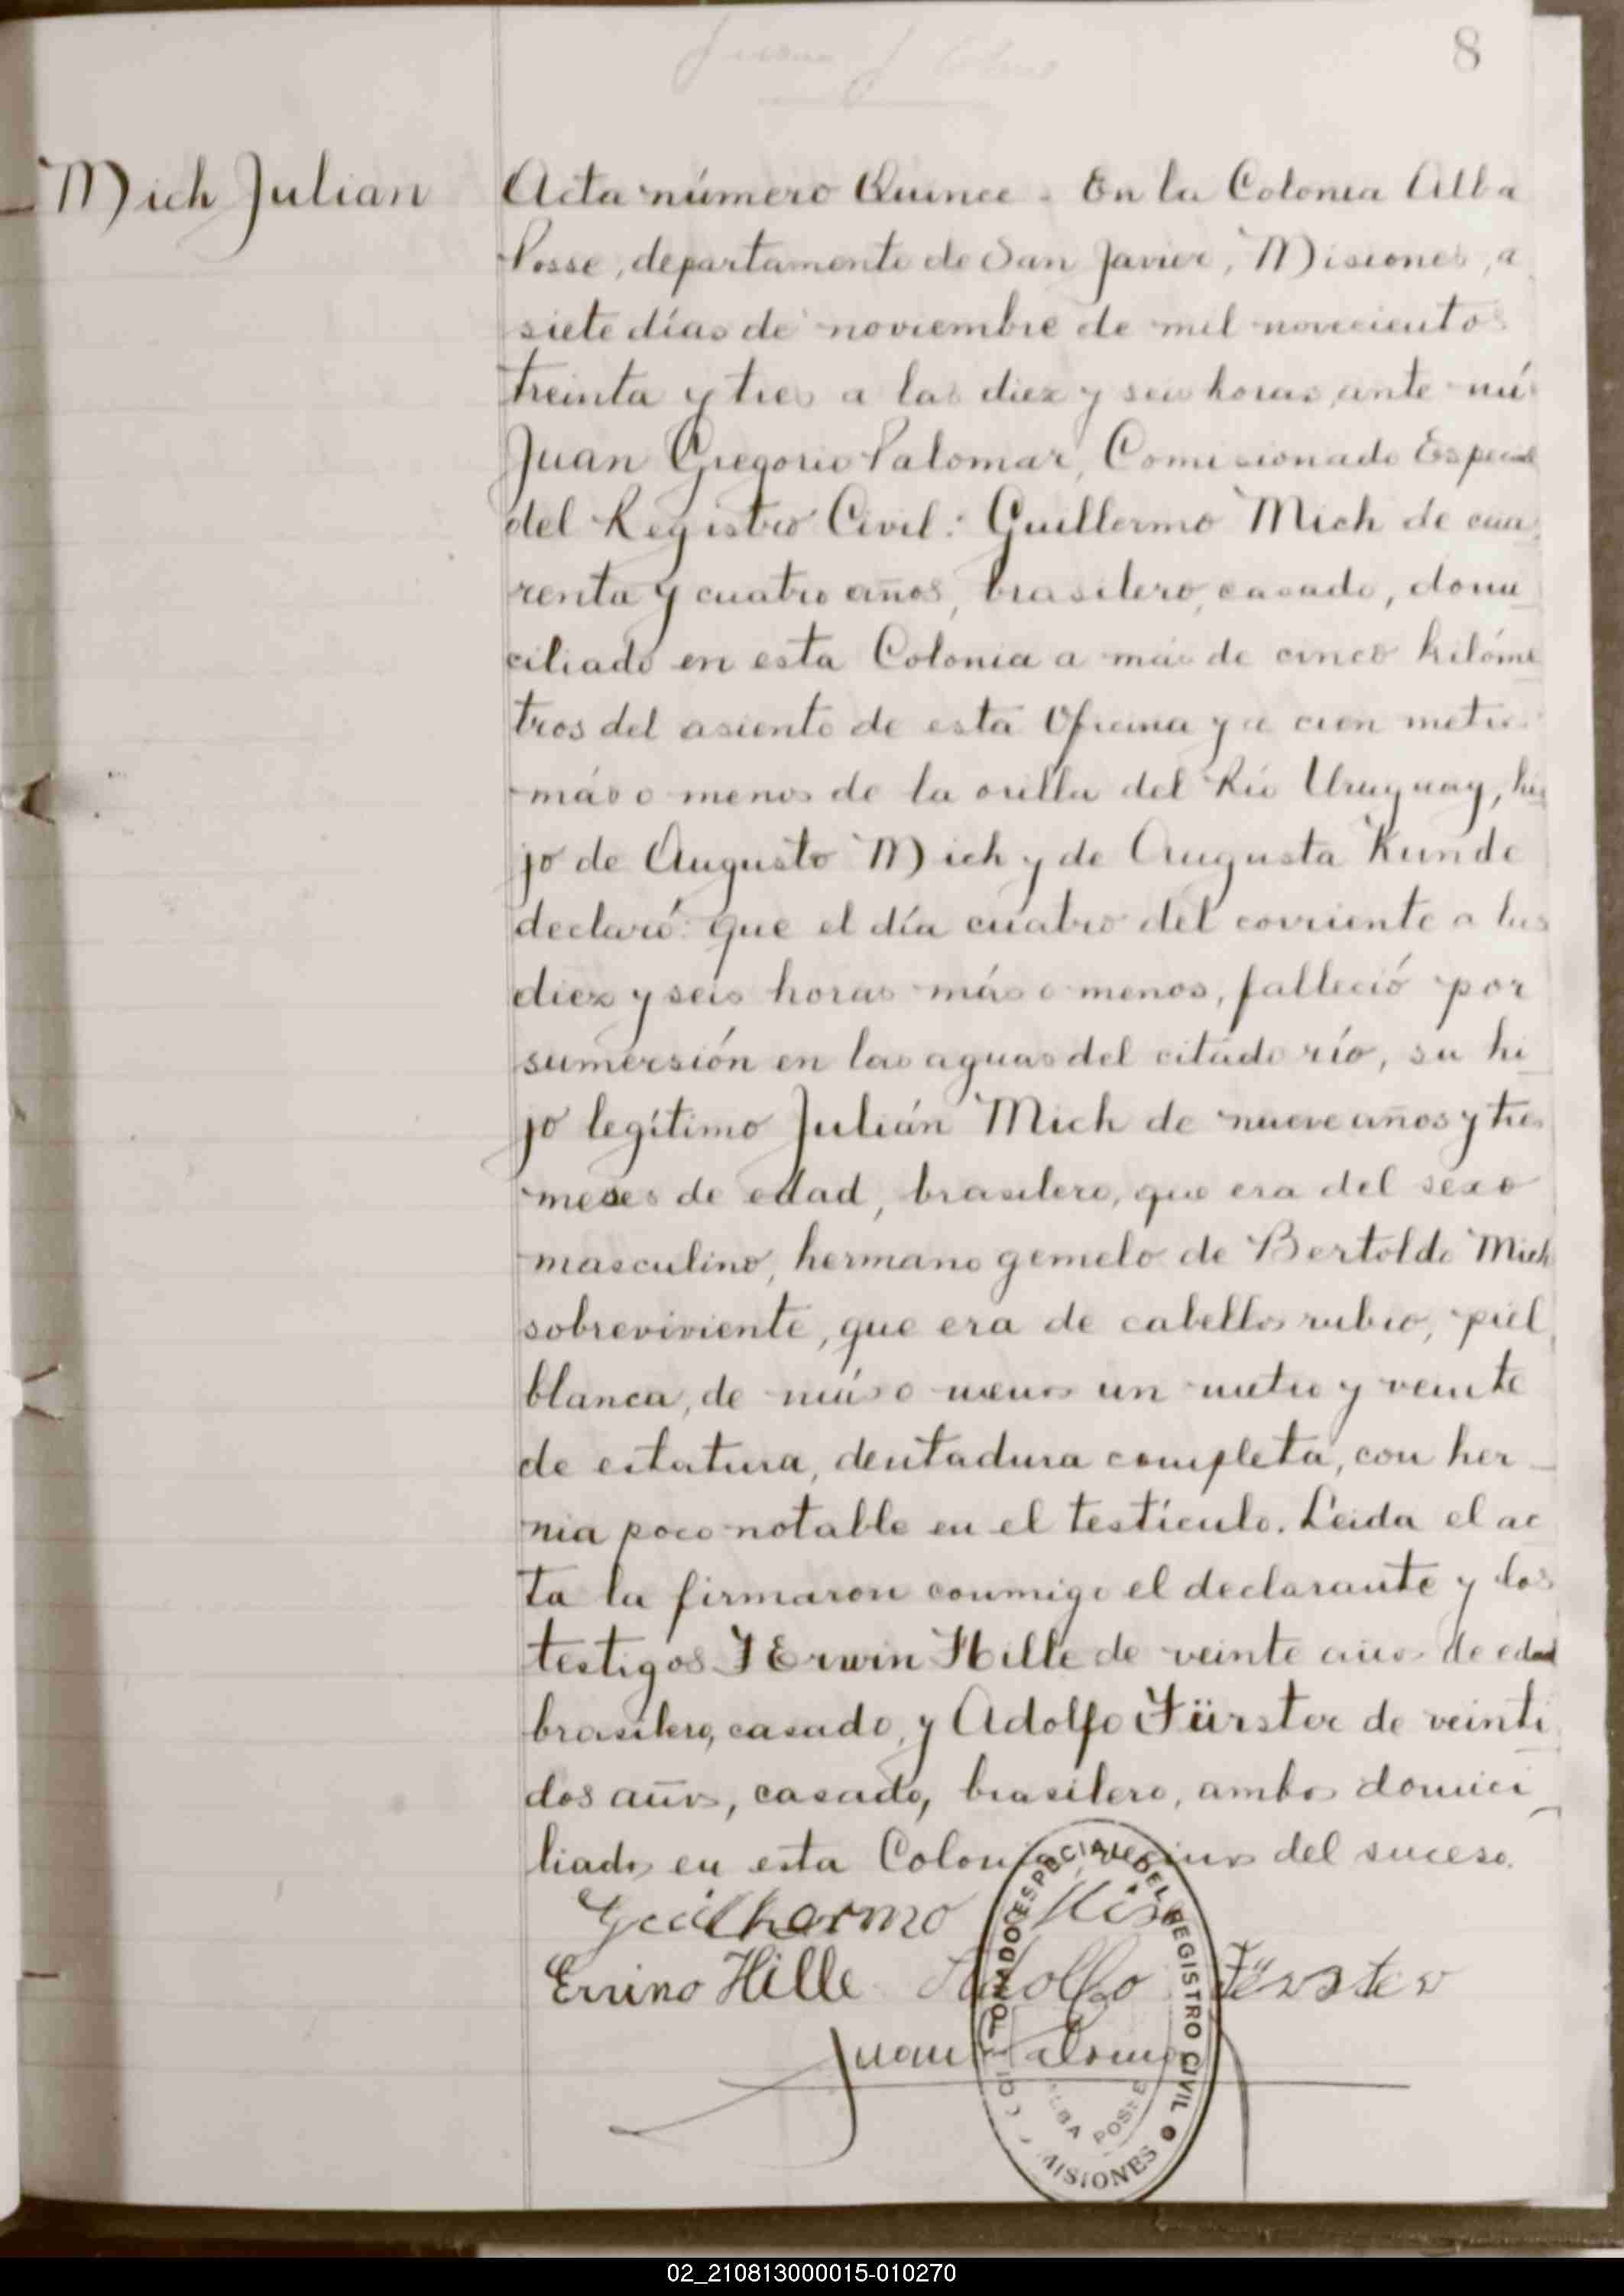 8
Mich Julian
Acta número Quince. En la Colonia Alba
Posse, departamento de San Javier, Misiones, a
siete días de noviembre de mil novecientos
treinta y tres a las diez y seis horas, ante mí
Juan Gregorio Palomar, Comisionado Especial
del Registro Civil: Guillermo Mich de cua
renta y cuatro años, brasilero, casado, domi
ciliado en esta Colonia a más de cinco kilóme
tros del asiento de esta Oficina y a cien metros
más o menos de la orilla del Río Uruguay, hi
jo de Augusto Mich y de Augusta Kunde
declaró: que el día cuatro del corriente a las
diez y seis horas más o menos, falleció por
sumersión en las aguas del citado río, su hi
jo legítimo Julián Mich de nueve años y tres
meses de edad, brasilero, que era del sexo
masculino, hermano gemelo de Bertoldo Mich
sobreviviente, que era de cabellos rubio, piel
blanca, de más o menos un metro y veinte
de estatura, dentadura completa, con her
nia poco notable en el testículo. Leida el ac
ta la firmaron conmigo el declarante y los
testigos Erwin Hille de veinte años de edad
brasilero, casado, y Adolfo Fürster de veinti
dos años, casado, brasilero, ambos domici
liados en esta Colonia, vecinos del suceso.
Guilhermo
Errino Hille Adolfo Fürster
Juan Palomar
COMISIONADO ESPECIAL DEL REGISTRO CIVIL
ALBA POSSE
MISIONES
02_210813000015-010270